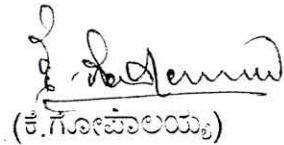 (ಕೆ.ಗೋಪಾಲಯ್ಯ)